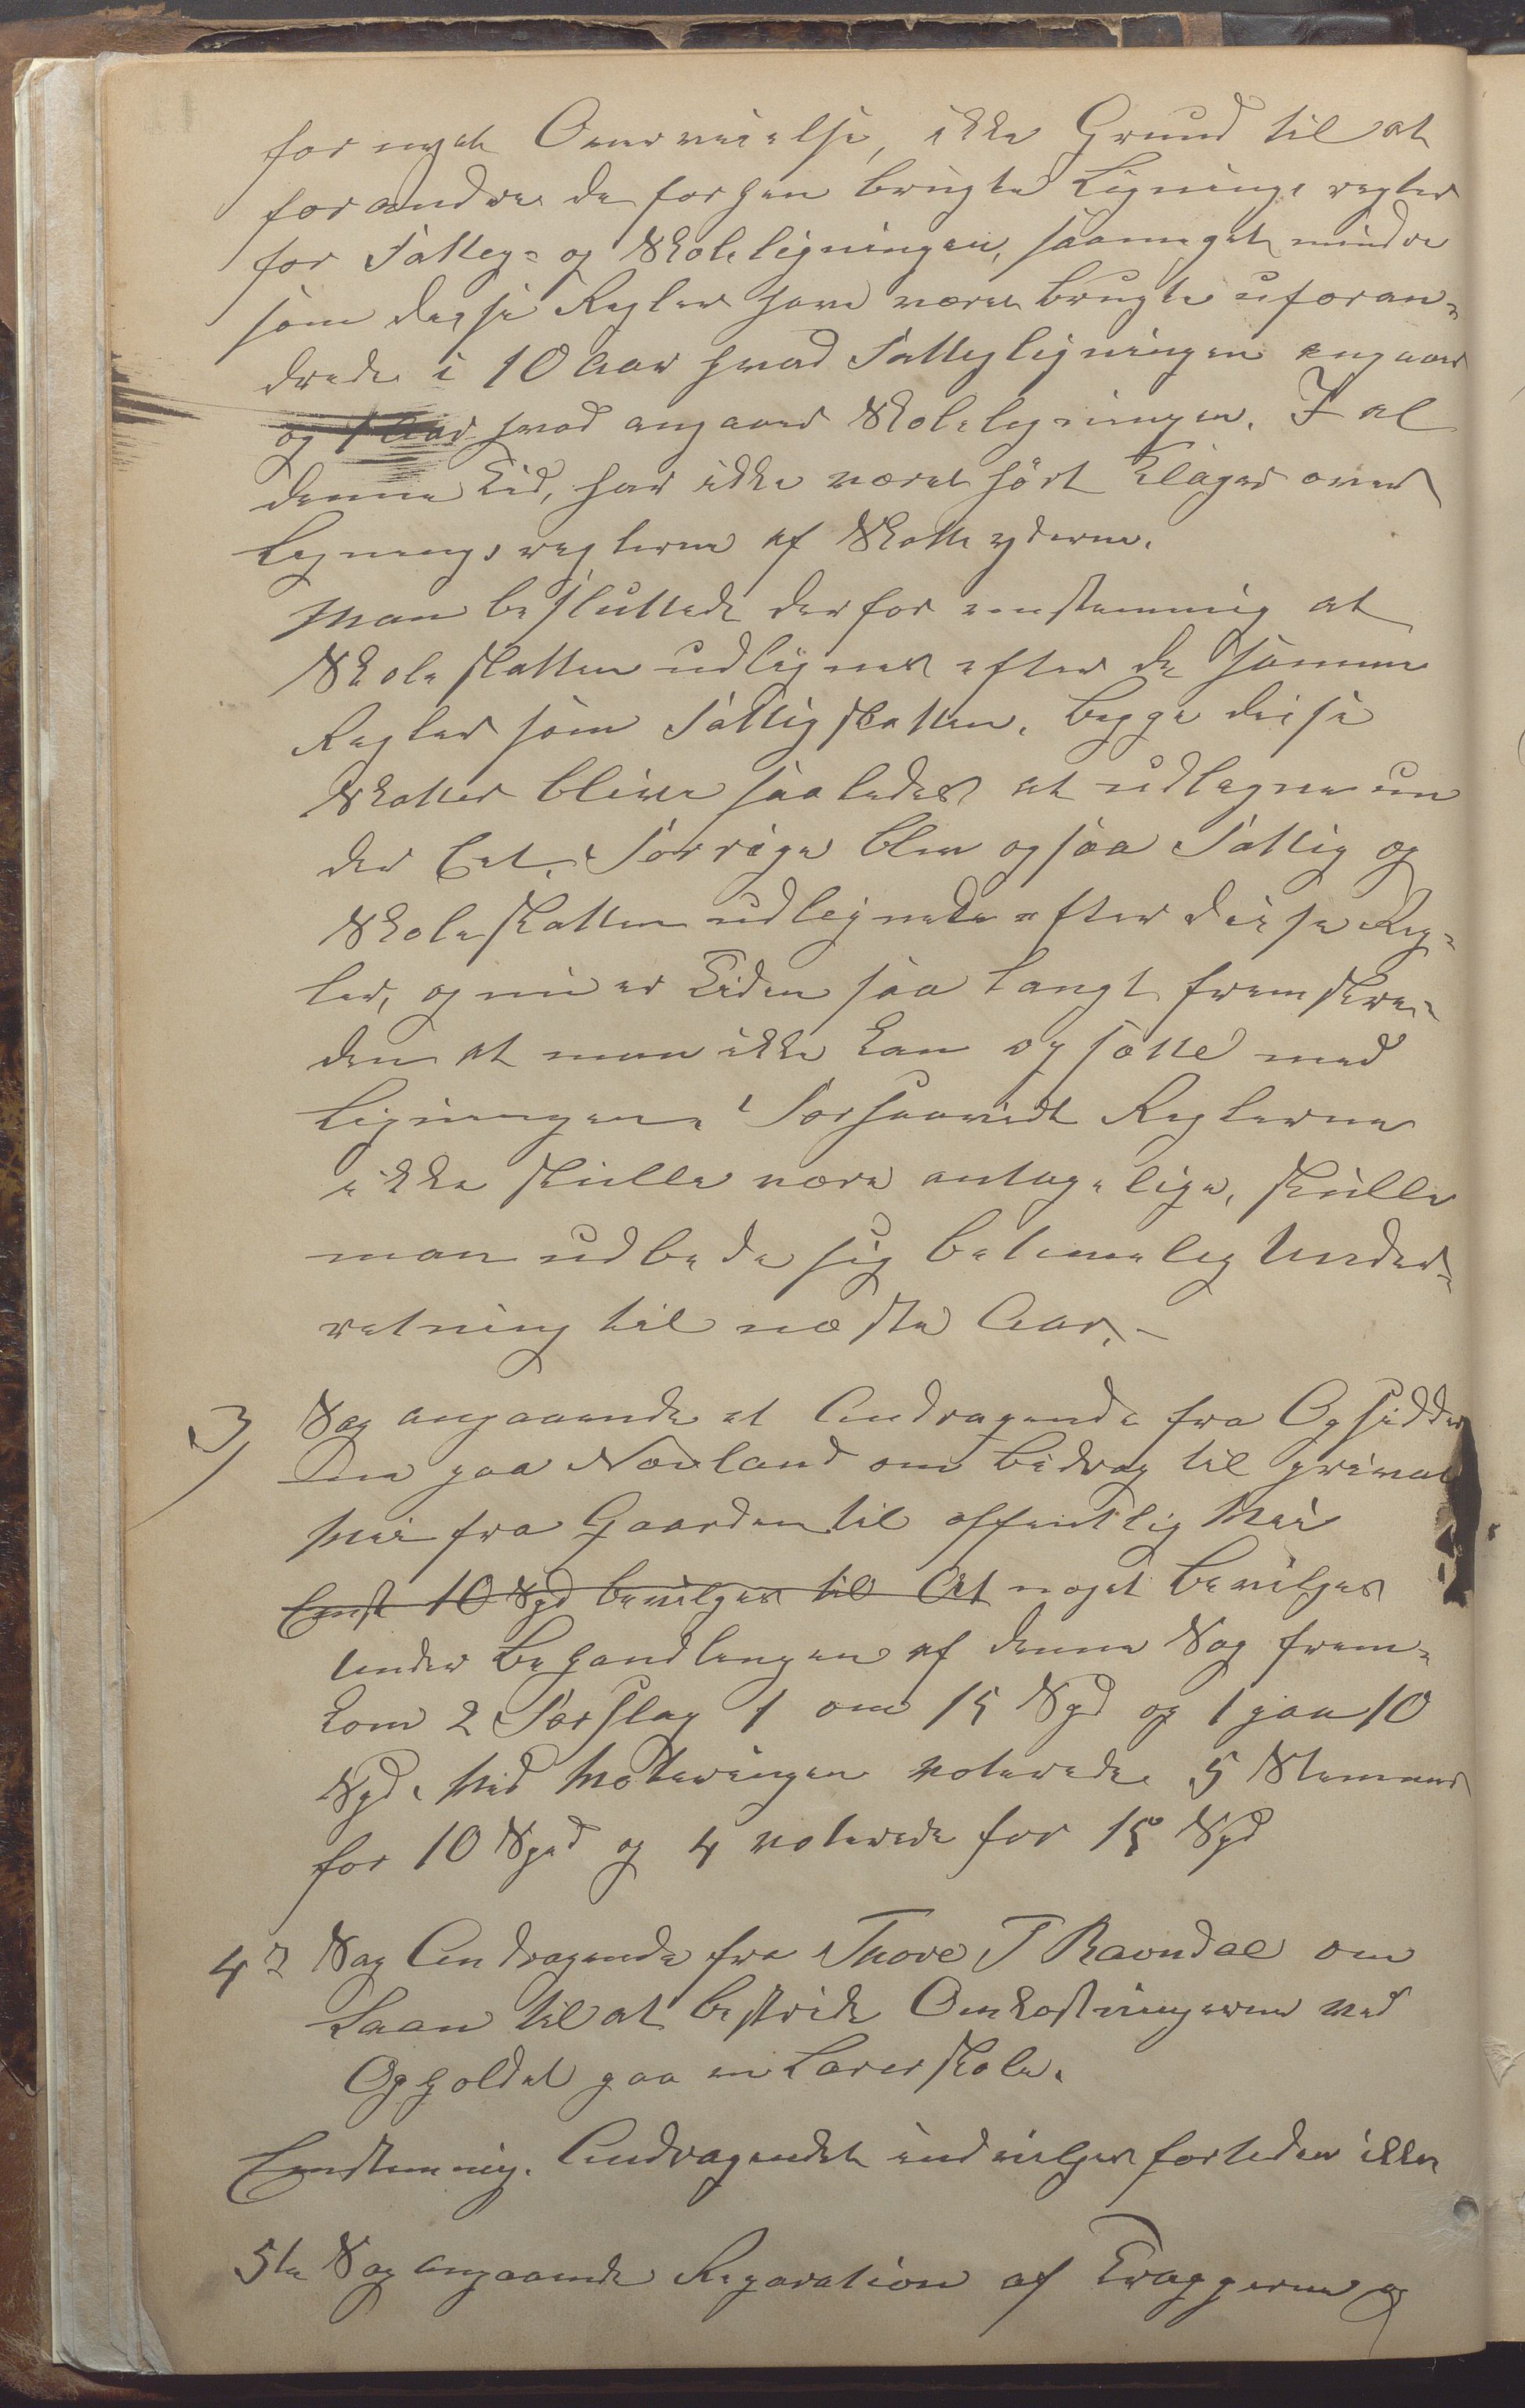 fornyet Overveielse, ikke Grund til at
forandre de forhen brugte Lignings regler
for Fattig- og Skoleligningen, saameget mindre
som disse Regler have været brugte uforan-
drede i 10 Aar hvad Fattigligningen angaar
og 1 Aar hvad angaar Skoleligningen. I al
denne Tid, har ikke været hørt Klager over
Ligningsreglerne af Skatteyderne.
Man besluttede derfor eenstemmig at
Skoleskatten udlignes efter de samme
Regler som Fattigskatten. Begge disse
Skatter blive saaledes at udligne un
der Eet. Forrige blev ogsaa Fattig og
Skoleskatten udlignede efter disse Reg-
ler, og nu er Tiden saa langt fremskre-
den at man ikke kan opsætte med
Ligningen. Forsaavidt Reglerne
ikke skulle være antagelige, skulle
man udbede sig betimelig Under-
retning til næste Aar.-
3) Sag angaaende et Andragende fra Opsidder
ne paa Novland om Bidrag til privat
Vei fra Gaarden til offentlig Vei
Eenst 10 Spd bevilges til At noget bevilges
Under Behandlingen af denne Sag frem-
kom 2 Forslag 1 om 15 Spd og 1 paa 10
Spd. Ved Voteringen voterede 5 Stemmer
for 10 Spd og 4 voterede for 15 Spd
4) Sag Andragende fra Thore T Ravndal om
Laan til at bestride Omkostningerne ved
Opholdet paa en Lærerskole.
Eenstemmig. Andragendet indvilges fortiden ikke
5te Sag angaaende Reparation af Trapperne og